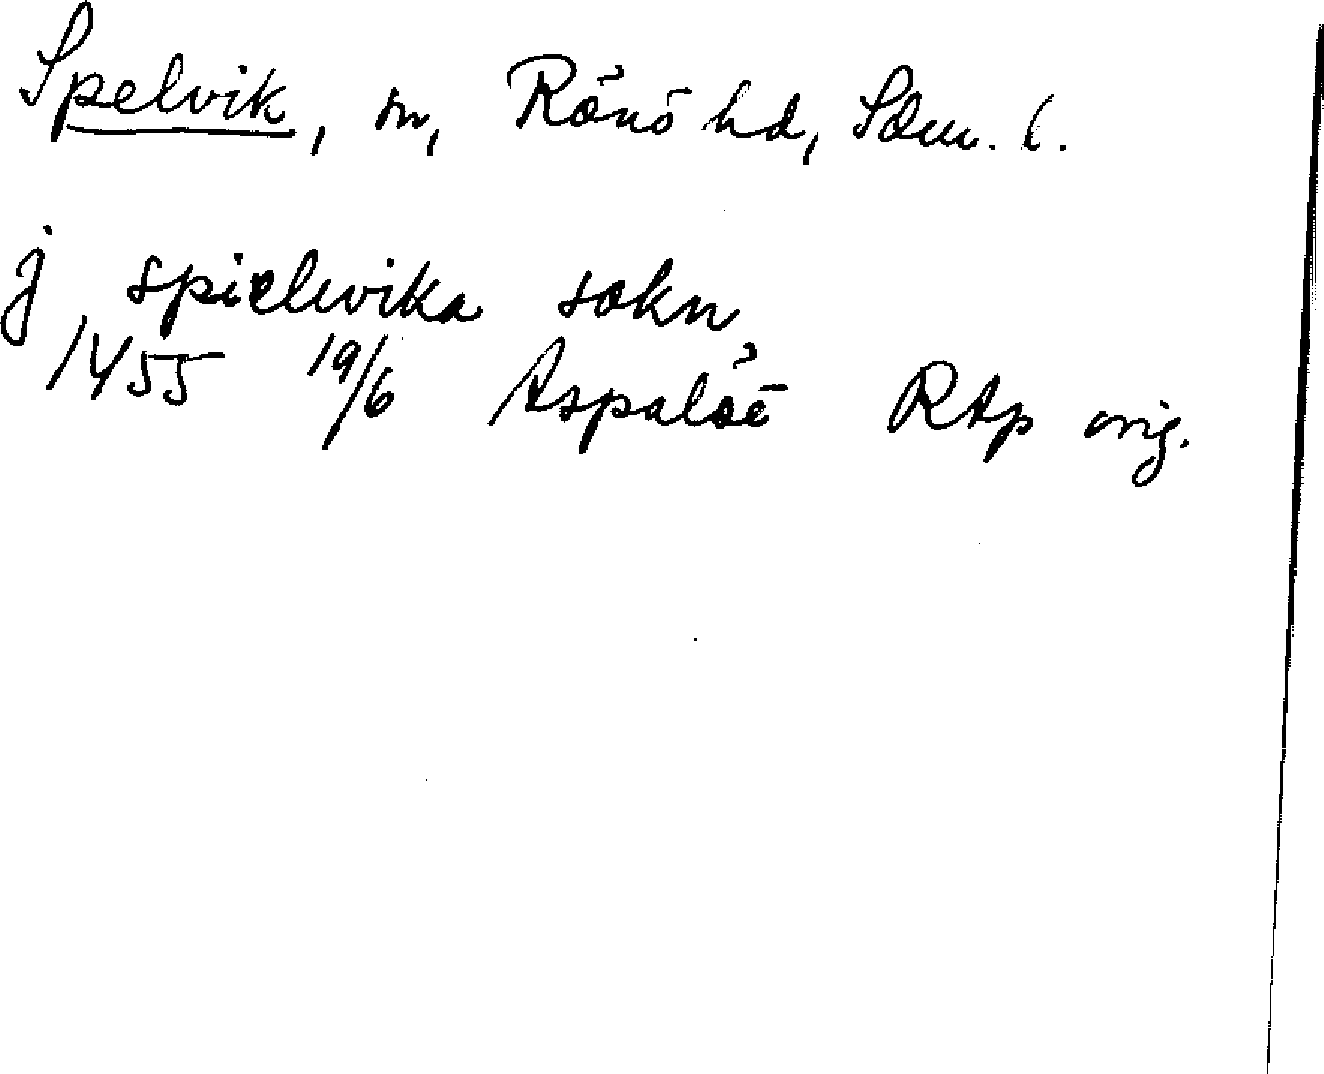 Spelvik, sn, Rönö hd, Sdm. l.
j spielwika sokn
1455 19/6 Aspaløē RAp orig.